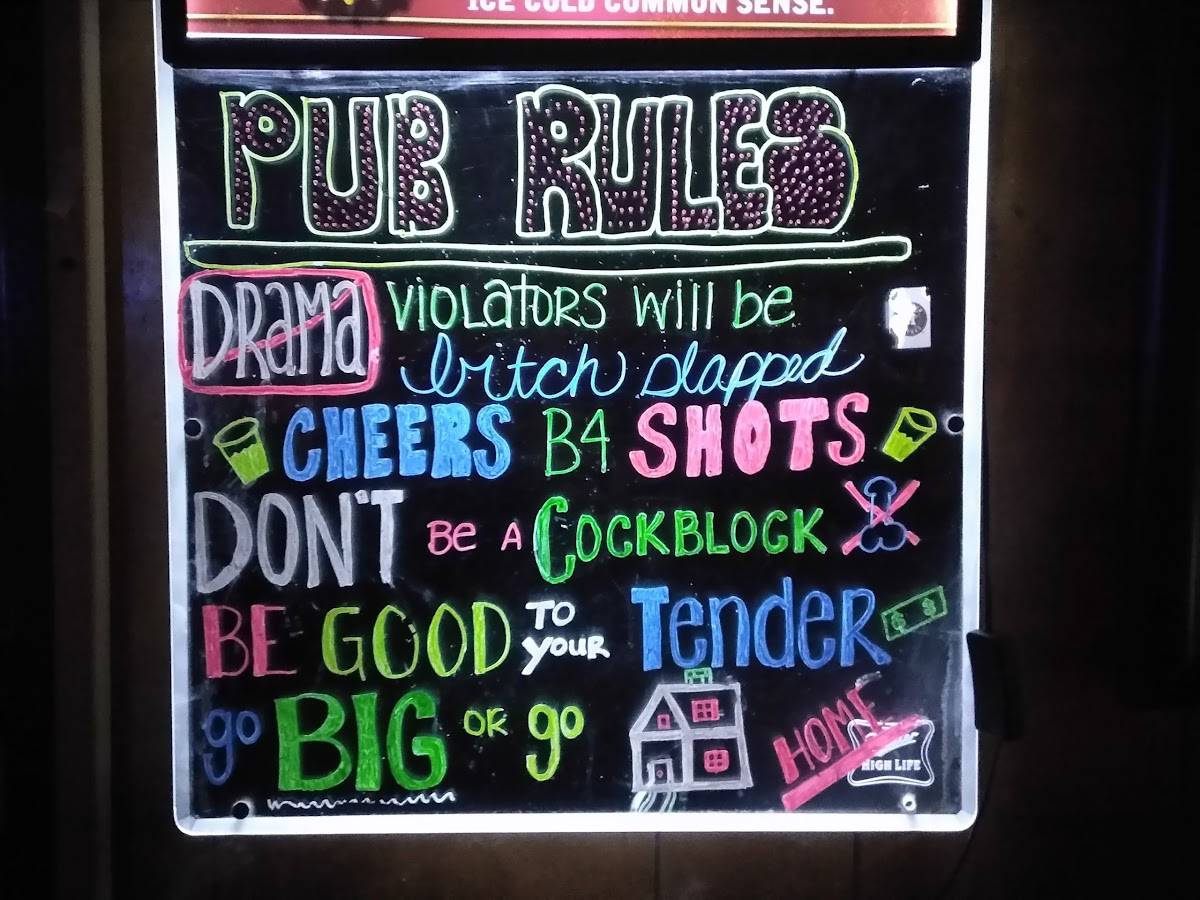 ICE COLD COMMON SENSE.
PUB RULES
DRaMa VIOLatORS will be
bitch slapped
CHEERS B4 SHOTS
DON'T Be A COCKBLOCK
BE GOOD TO YOUR TenDeR
go BIG OR go HOME
HIGH LIFE